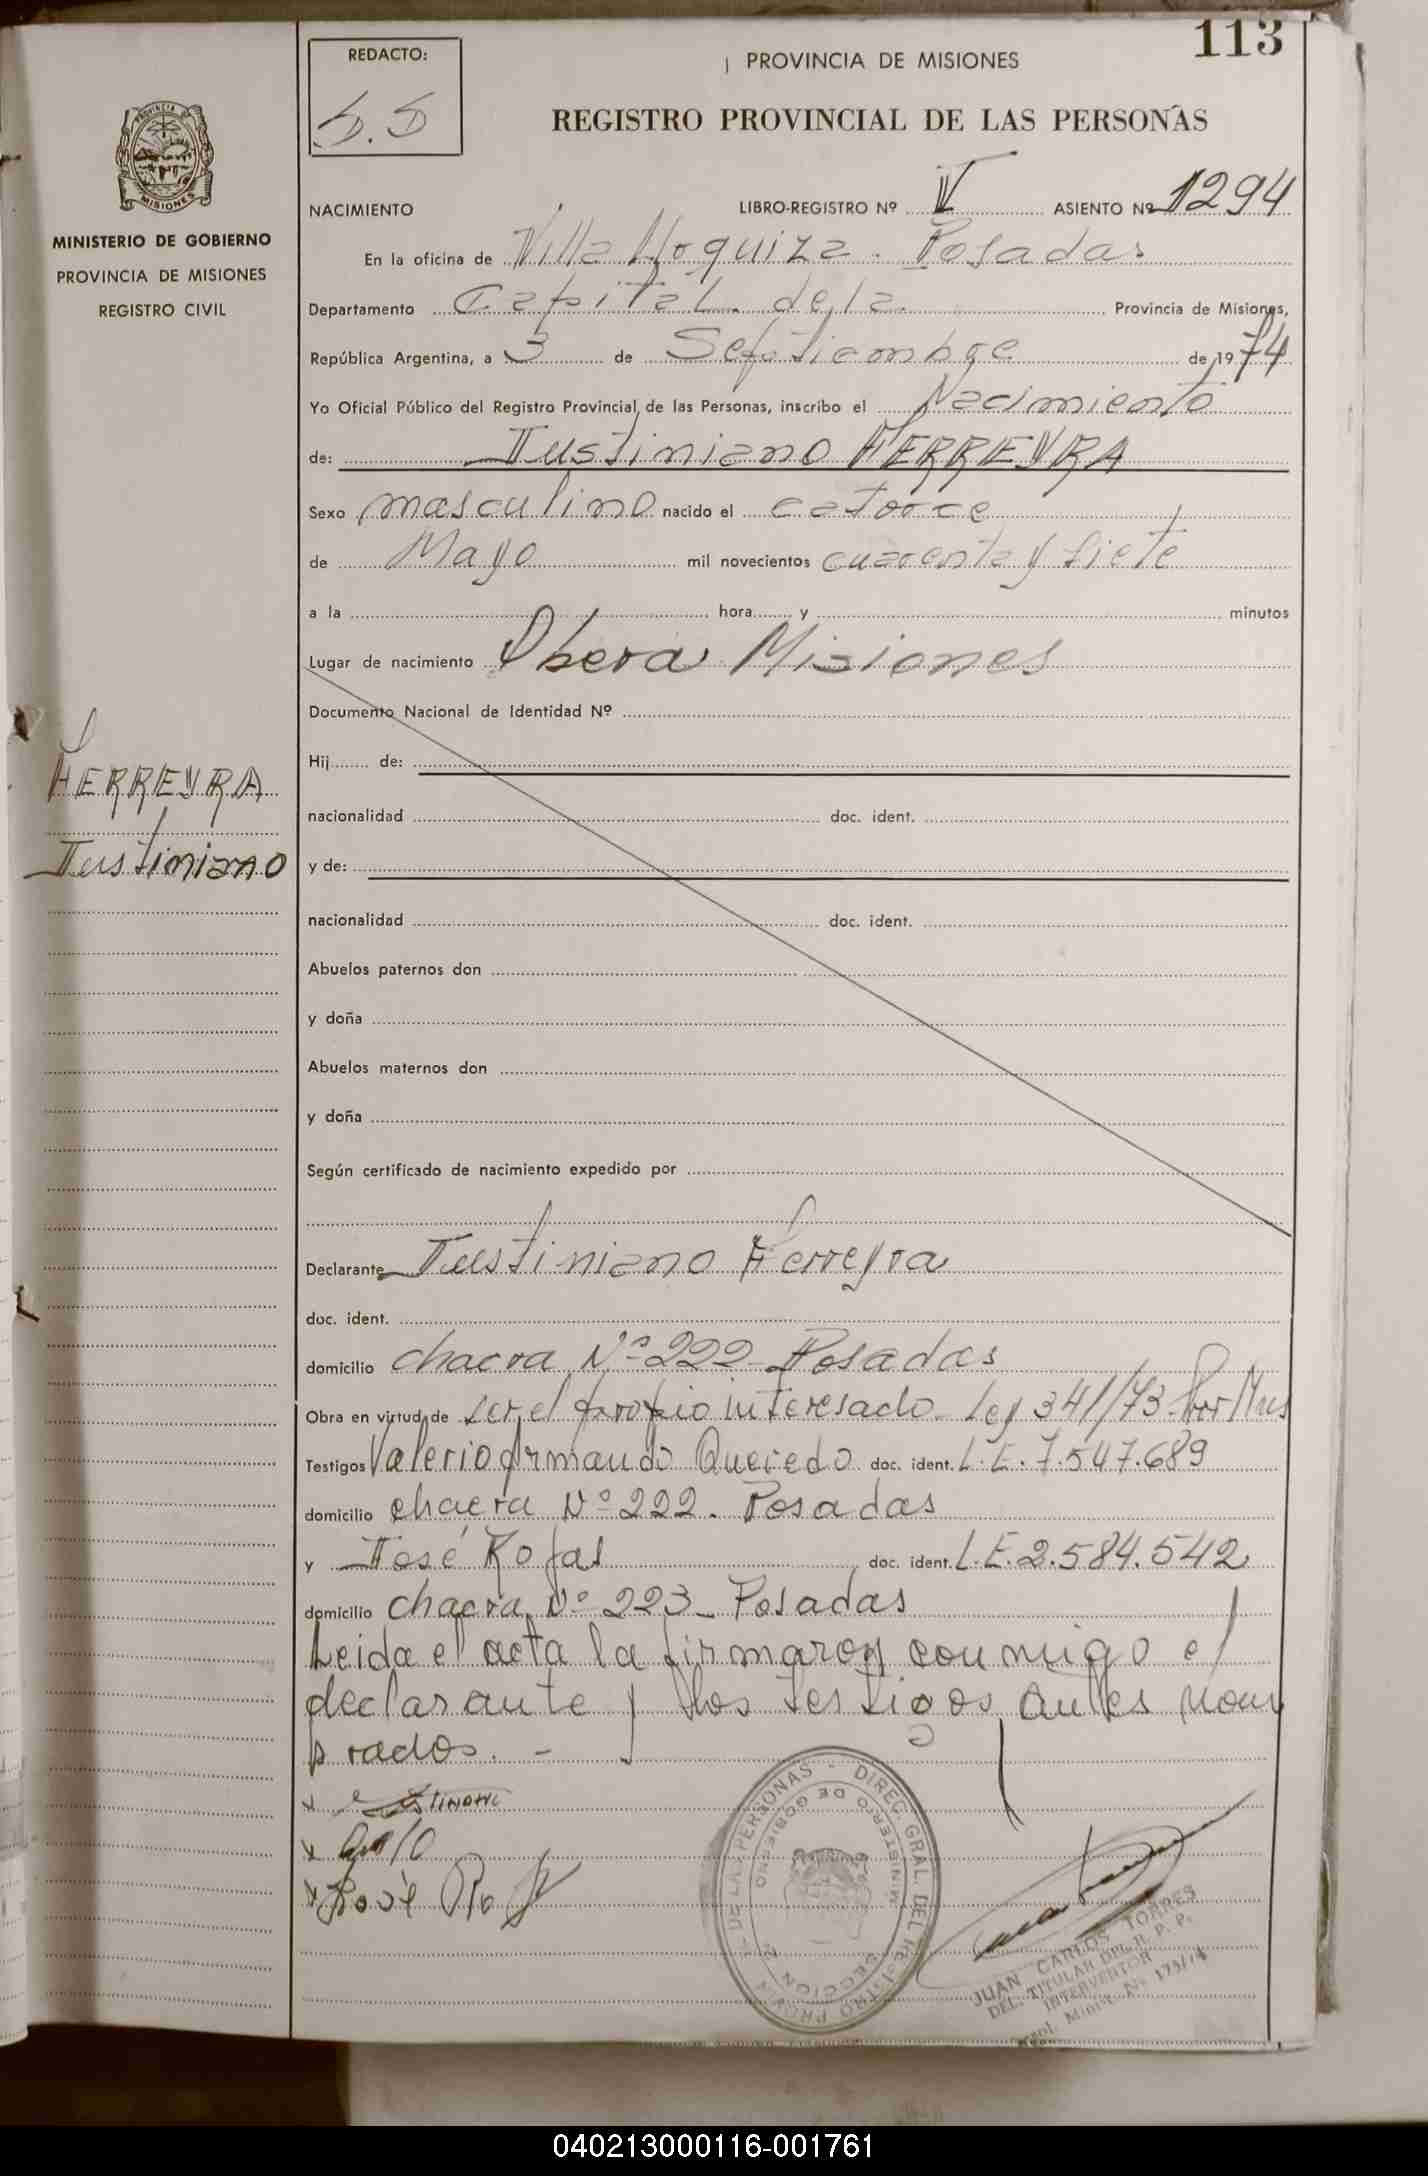 113
REDACTO:
S.S
PROVINCIA DE MISIONES
REGISTRO PROVINCIAL DE LAS PERSONAS
MISIONES
MINISTERIO DE GOBIERNO
PROVINCIA DE MISIONES
REGISTRO CIVIL
HERREYRA
Justiniano
NACIMIENTO LIBRO-REGISTRO Nº V ASIENTO Nº 1294
En la oficina de Villa Urquiza. Posadas
Departamento Capital. de la Provincia de Misiones,
República Argentina, a 3 de Septiembre de 1974
Yo Oficial Público del Registro Provincial de las Personas, inscribo el Nacimiento
de: Justiniano HERREYRA
Sexo masculino nacido el catorce
de Mayo mil novecientos cuarenta y siete
a la hora y minutos
Lugar de nacimiento Obera Misiones
Documento Nacional de Identidad Nº
Hij de:
nacionalidad doc. ident.
y de:
nacionalidad doc. ident.
Abuelos paternos don
y doña
Abuelos maternos don
y doña
Según certificado de nacimiento expedido por
Declarante Justiniano Herreyra
doc. ident.
domicilio chacra Nº 222 Posadas
Obra en virtud de ser el propio interesado. Ley 341/73
Testigos Valerio Armando Quevedo doc. ident. L.E. 7.547.689
domicilio chacra Nº 222. Posadas
y José Rojas doc. ident. L.E. 2.584.542
domicilio chacra Nº 223 - Posadas
Leida el acta la firmaron conmigo el
declarante y los testigos antes nom
brados. -
PROVIN DE LAS PERSONAS - DIREC. GRAL. DEL REGISTRO
MINISTERIO DE GOBIERNO
SECCION 2ª
JUAN CARLOS TORRES
DEL. TITULAR DEL R. P. P.
INTERVENTOR
Minist. Nº 175/74
040213000116-001761